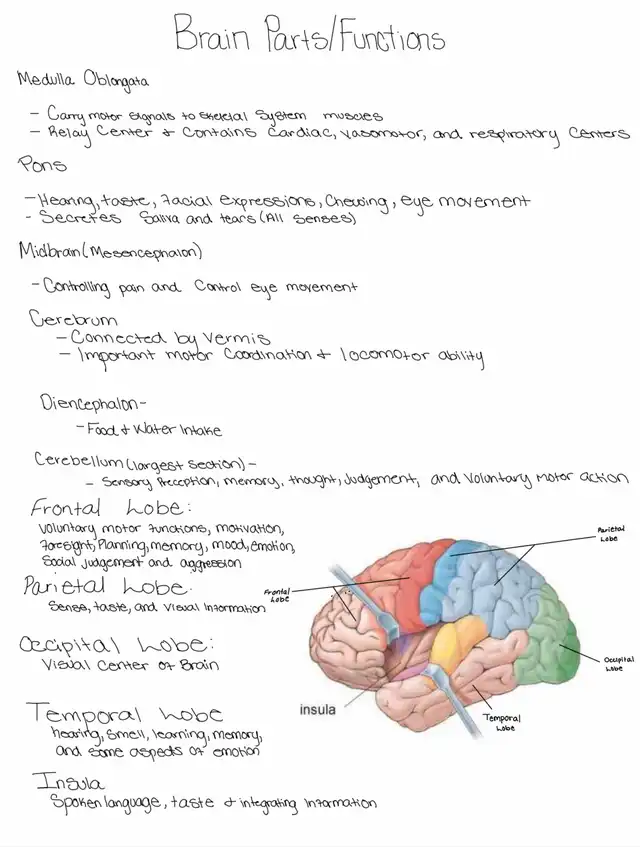 Brain Parts/Functions
Medulla Oblongata
- Carry motor signals to skeletal system muscles
- Relay Center & Contains Cardiac, Vasomotor, and respiratory Centers
Pons
- Hearing, taste, Facial expressions, Chewing, eye movement
- Secretes Saliva and tears (All senses)
Midbrain (Mesencephalon)
- Controlling pain and Control eye movement
Cerebrum
- Connected by Vermis
- Important motor Coordination & locomotor ability
Diencephalon-
- Food & Water Intake
Cerebellum (largest section) -
- Sensory Preception, memory, thought, Judgement, and Voluntary Motor action
Frontal Lobe:
Voluntary motor functions, motivation,
Foresight, Planning, memory, mood, emotion,
Social judgement and aggression
Parietal Lobe:
Sense, taste, and Visual Information
Occipital Lobe:
Visual Center of Brain
Temporal Lobe
hearing, smell, learning, memory,
and some aspects of emotion
Insula
Spoken language, taste & integrating information
Parietal
Lobe
Frontal
Lobe
Occipital
Lobe
insula
Temporal
Lobe